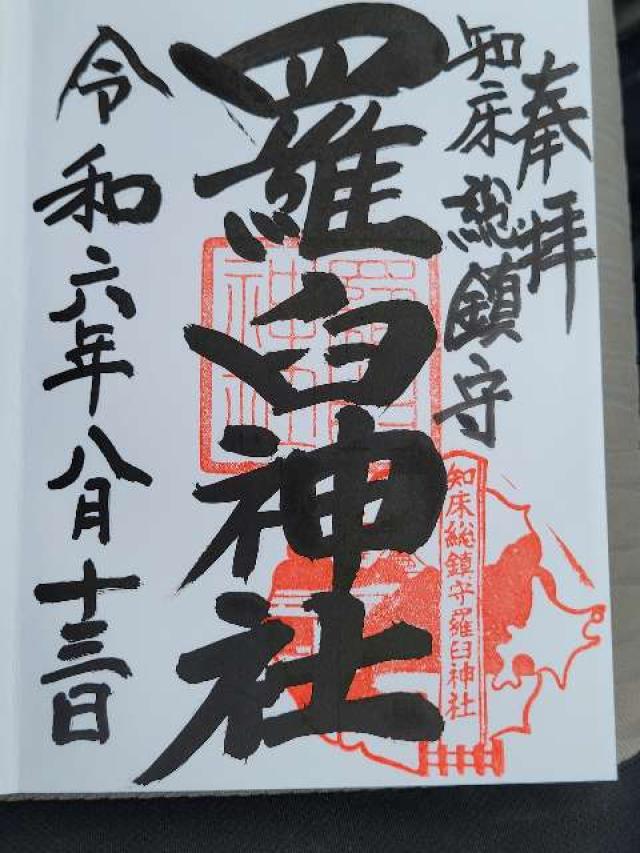 奉拝
知床総鎮守
羅臼神社
令和六年八月十三日
知床総鎮守羅臼神社